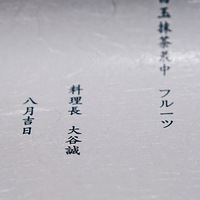 白玉抹茶最中 フルーツ
料理長 大谷誠
八月吉日